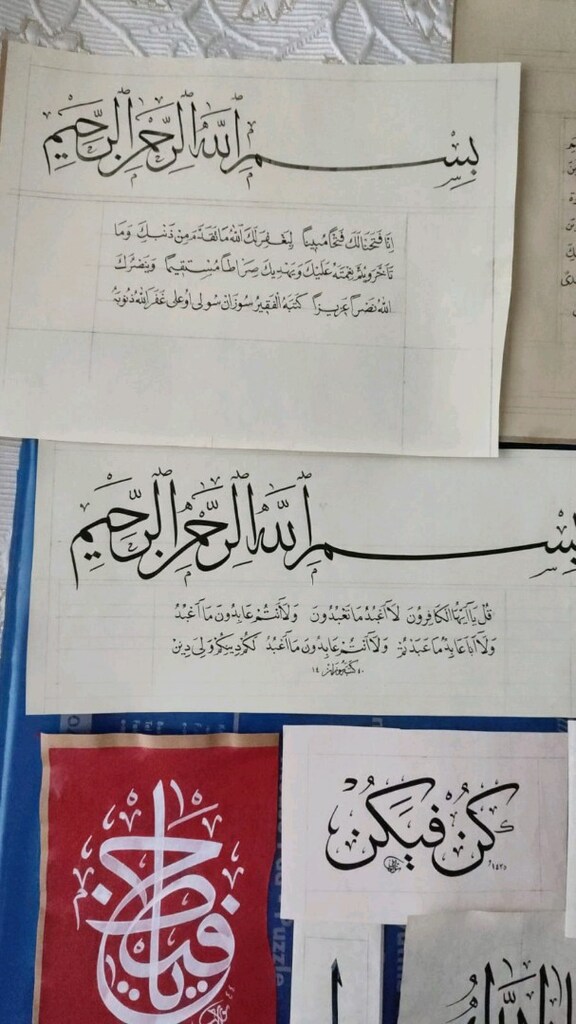 بِسْمِ اللّٰهِ الرَّحْمٰنِ الرَّحِيْمِ
اِنَّا فَتَحْنَا لَكَ فَتْحًا مُبِينًا لِيَغْفِرَ لَكَ اللّٰهُ مَا تَقَدَّمَ مِنْ ذَنْبِكَ وَمَا
تَأَخَّرَ وَيُتِمَّ نِعْمَتَهُ عَلَيْكَ وَيَهْدِيَكَ صِرَاطًا مُسْتَقِيمًا وَيَنْصُرَكَ
اللّٰهُ نَصْرًا عَزِيزًا كَتَبَهُ الْفَقِيرُ سوزان سولى اوغلى غَفَرَ اللّٰهُ ذُنُوبَهُ
بِسْمِ اللّٰهِ الرَّحْمٰنِ الرَّحِيْمِ
قُلْ يَا اَيُّهَا الْكَافِرُونَ لَا اَعْبُدُ مَا تَعْبُدُونَ وَلَا اَنْتُمْ عَابِدُونَ مَا اَعْبُدُ
وَلَا اَنَا عَابِدٌ مَا عَبَدْتُمْ وَلَا اَنْتُمْ عَابِدُونَ مَا اَعْبُدُ لَكُمْ دِينُكُمْ وَلِيَ دِينِ
كُنْ فَيَكُونُ
Puzzle